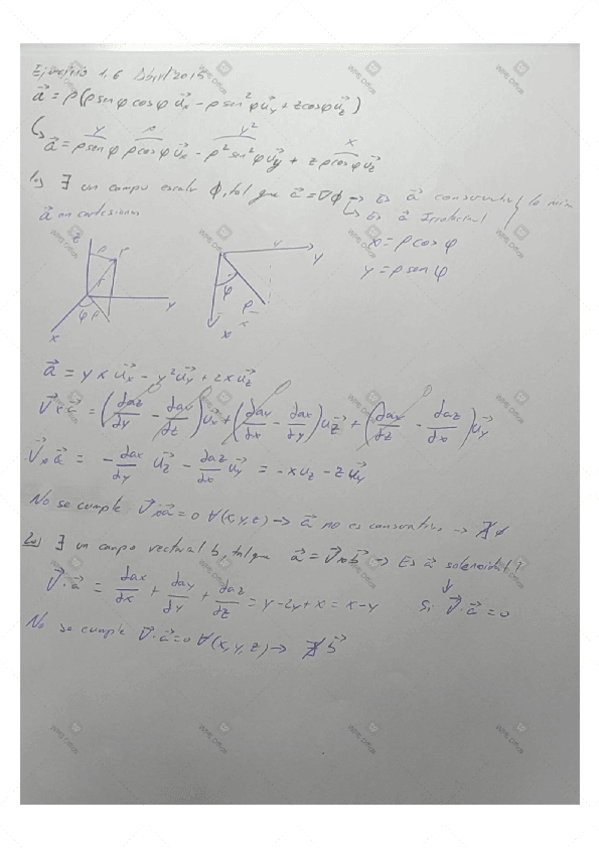 Ejercicio 1.6 Abril 2015
a⃗ = ρ(ρ sen φ cos φ u⃗x − ρ sen² φ u⃗y + z cos φ u⃗z)
y ρ y² x
↳ a⃗ = ρ sen φ ρ cos φ u⃗x − ρ² sen² φ u⃗y + z ρ cos φ u⃗z
1o) ∃ un campo escalar ϕ, tal que a⃗ = ∇ϕ → Es a⃗ conservativo
↳ Es a⃗ Irrotacional
lo mismo
a⃗ en cartesianas
x = ρ cos φ
y = ρ sen φ
z ρ P r φ ρ x y
y y φ ρ x x
a⃗ = y x u⃗x − y² u⃗y + z x u⃗z
∇⃗ × a⃗ = (∂az/∂y − ∂ay/∂z) u⃗x + (∂ay/∂x − ∂ax/∂y) u⃗z + (∂ax/∂z − ∂az/∂x) u⃗y
∇⃗ × a⃗ = − ∂ax/∂y u⃗z − ∂az/∂x u⃗y = −x u⃗z − z u⃗y
No se cumple ∇⃗ × a⃗ = 0 ∀(x, y, z) → a⃗ no es conservativo → ∄ ϕ
2o) ∃ un campo vectorial b, tal que a⃗ = ∇⃗ × b⃗ → Es a⃗ solenoidal?
↓
∇⃗ · a⃗ = ∂ax/∂x + ∂ay/∂y + ∂az/∂z = y − 2y + x = x − y Si ∇⃗ · a⃗ = 0
No se cumple ∇⃗ · a⃗ = 0 ∀(x, y, z) → ∄ b⃗